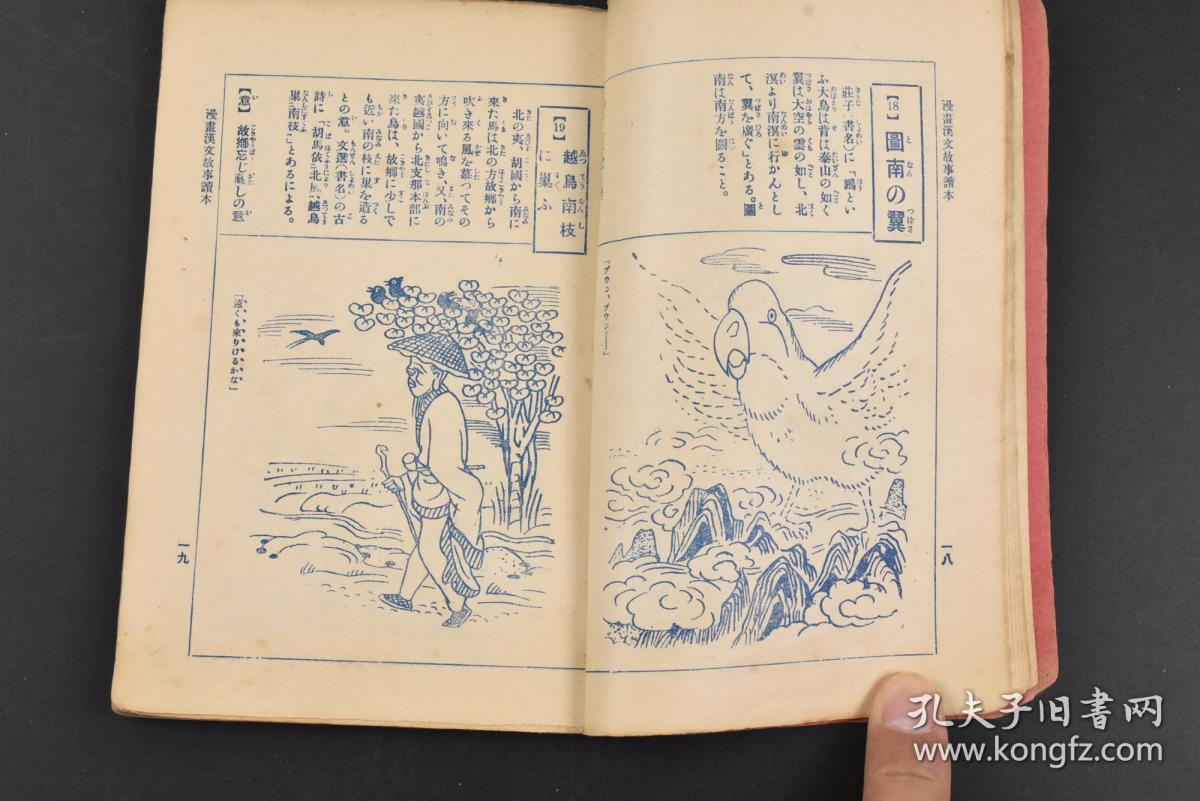 漫畫漢文故事讀本
【18】圖南の翼
莊子(書名)に「鵬とい
ふ大鳥は背は泰山の如く
翼は大空の雲の如し、北
溟より南溟に行かんとし
て、翼を廣ぐ」とある。圖
南は南方を圖ること。
「ブウン、ブウン――」
一八
【19】越鳥南枝
に巢ふ
北の夷、胡國から南に
來た馬は北の方故鄕から
吹き來る風を慕つてその
方に向いて鳴き、又、南の
夷越國から北支那本部に
來た鳥は、故鄕に少しで
も近い南の枝に巢を造る
との意。文選(書名)の古
詩に「胡馬依北風、越鳥
巢南枝」とあるによる。
【意】故鄕忘じ難しの意
「遠くも來りけるかな」
漫畫漢文故事讀本
一九
孔夫子旧書网
www.kongfz.com